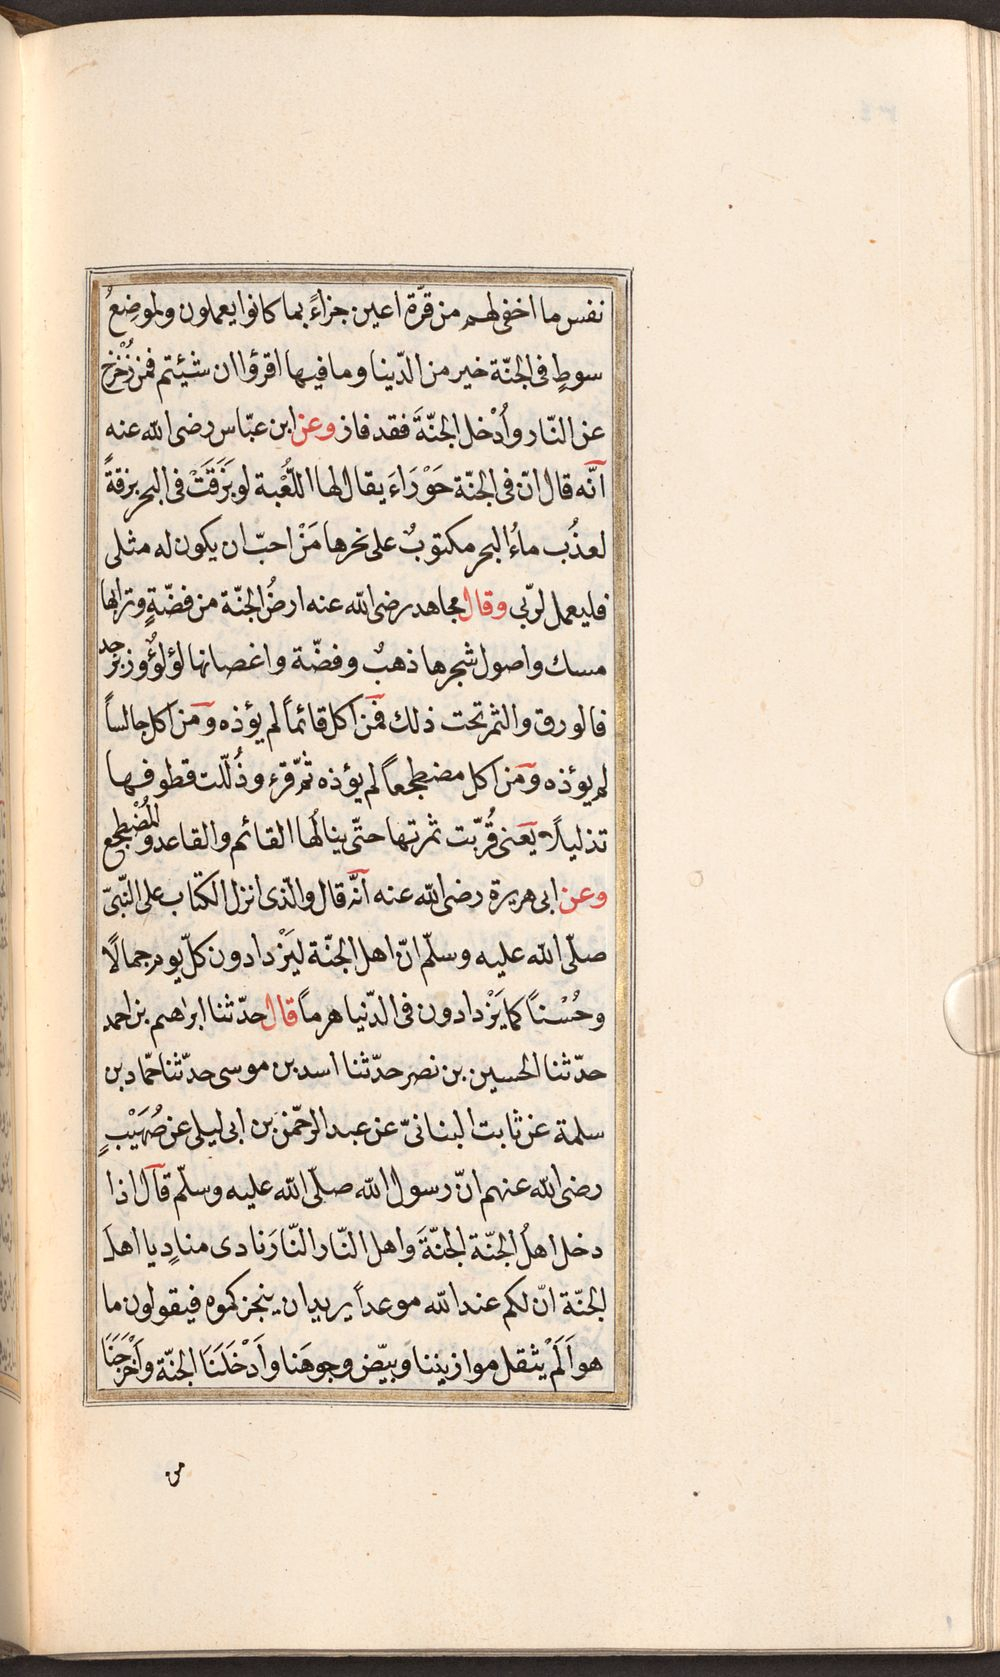 نفس ما اخفى لهم من قرّة اعين جزاءً بما كانوا يعملون ولموضِعُ
سوطٍ فى الجنّة خير من الدّينا وما فيها اقرؤا ان شيئتم فمن زُحْزح
عن النّار واُدْخل الجنّةَ فقد فاز وعن ابن عبّاس رضى الله عنه
انّه قال انّ فى الجنّة حَوْرَاءَ يقال لها اللُّعْبة لو بَزَقَتْ فى البحر بزقةً
لعذُب ماءُ البحر مكتوبٌ على نحرها مَنْ احبّ ان يكون له مثلى
فليعمل لربّى وقال مجاهد رضى الله عنه ارضُ الجنّة من فضّةٍ وترابها
مسك واصول شجرها ذهبٌ وفضّة واغصانها لؤلؤٌ وزبرجد
فالورق والثمر تحت ذلك فمن اكل قائماً لم يؤذه ومن اكل جالساً
لم يؤذه ومن اكل مضطجعاً لم يؤذه ثمّ قرء وذُلّلت قطوفها
تذليلًا يعنى قُرّبت ثمرتها حتّى ينالُها القائم والقاعد والمُضْطجع
وعن ابى هريرة رضى الله عنه انّه قال والّذى انزل الكتاب على النّبىّ
صلّى الله عليه وسلّم انّ اهل الجنّة ليَزْدادون كلّ يوم جمالًا
وحُسْناً كما يَزْدادون فى الدّنيا هرماً قال حدّثنا ابراهيم بن احمد
حدّثنا الحسين بن نصر حدّثنا اسد بن موسى حدّثنا حمّاد بن
سلمة عن ثابت البنانىّ عن عبد الرحّمن بن ابى ليلى عن صُهَيْبٍ
رضى الله عنهم انّ رسول الله صلّى الله عليه وسلّم قال اذا
دخل اهلُ الجنّة الجنّةَ واهل النّار النّارَ نادى منادٍ يا اهلَ
الجنّة انّ لكم عند الله موعداً يريد ان ينجزكموه فيقولون ما
هو اَلَمْ يثقل موازيننا وبيّض وجوهَنا واَدْخَلَنَا الجنّة واَخْرَجَنَا
من